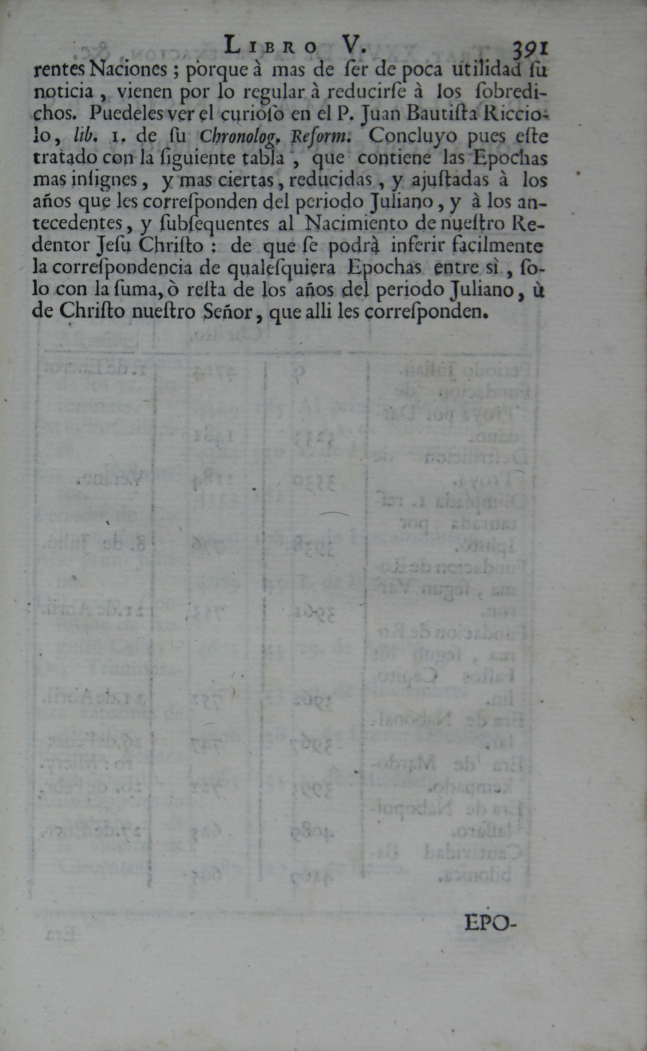 LIBRO V. 391
rentes Naciones ; porque à mas de ſer de poca utilidad ſu
noticia , vienen por lo regular à reducirſe à los ſobredi-
chos. Puedeles ver el curioſo en el P. Juan Bautiſta Riccio-
lo, lib. 1. de ſu Chronolog. Reform. Concluyo pues eſte
tratado con la ſiguiente tabla , que contiene las Epochas
mas inſignes , y mas ciertas , reducidas , y ajuſtadas à los
años que les correſponden del periodo Juliano, y à los an-
tecedentes, y ſubſequentes al Nacimiento de nueſtro Re-
dentor Jeſu Chriſto : de que ſe podrà inferir facilmente
la correſpondencia de qualeſquiera Epochas entre sì , ſo-
lo con la ſuma, ò reſta de los años del periodo Juliano, ù
de Chriſto nueſtro Señor, que alli les correſponden.
EPO-